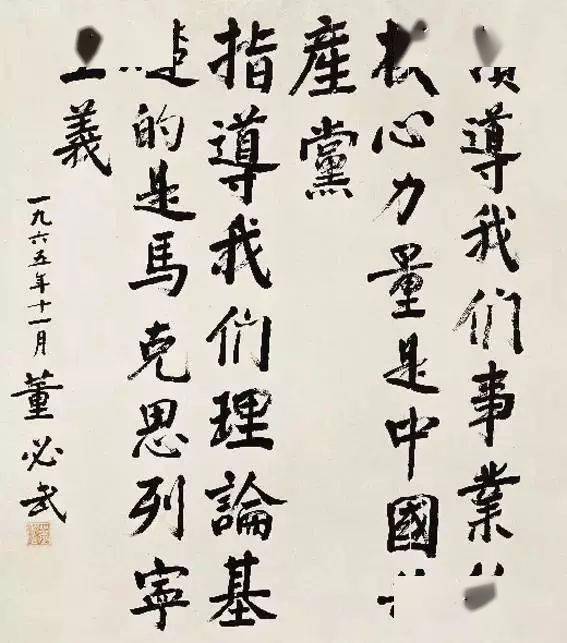 導我们事業
心力量是中國
産黨
指導我们理論基
的是馬克思列寧
義
一九六五年十一月
董必武